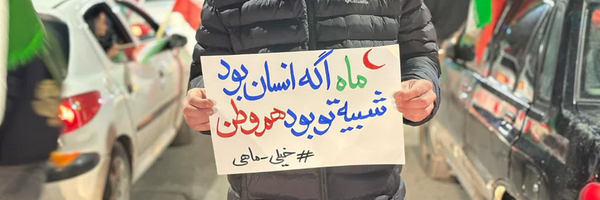 ماه اگه انسان بود
شبیه تو بود هم وطن
#خیلی-ماهی